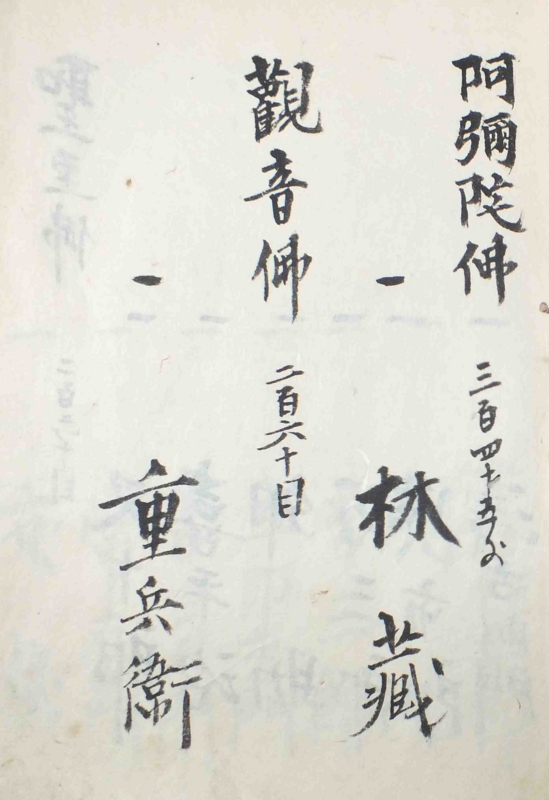 阿彌陀佛
三百四十五匁
一 林藏
觀音佛
二百六十目
一 重兵衛